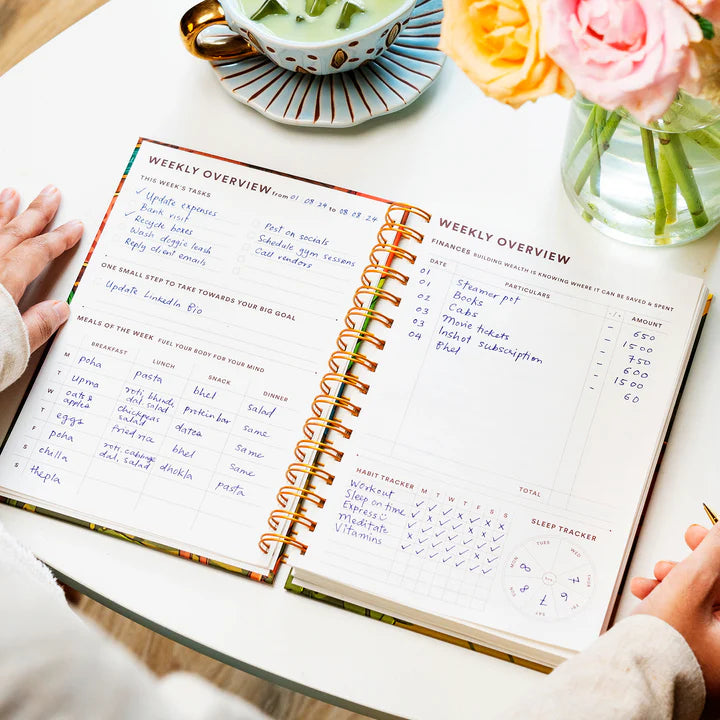 WEEKLY OVERVIEW from 01 08 24 to 08 08 24
THIS WEEK'S TASKS
✓ Update expenses
Bank visit
✓ Recycle boxes
Wash doggie leash
Reply client emails
Post on socials
Schedule gym sessions
Call vendors
ONE SMALL STEP TO TAKE TOWARDS YOUR BIG GOAL
Update LinkedIn Bio
MEALS OF THE WEEK FUEL YOUR BODY FOR YOUR MIND
BREAKFAST LUNCH SNACK DINNER
M poha pasta bhel salad
T upma roti, bhindi dal, salad protein bar same
W oats & apples chickpeas salad dates same
T eggs fried rice bhel same
F poha roti, cabbage dal, salad dhokla pasta
S chilla
S thepla
WEEKLY OVERVIEW
FINANCES BUILDING WEALTH IS KNOWING WHERE IT CAN BE SAVED & SPENT
DATE PARTICULARS -/+ AMOUNT
01 Steamer pot - 650
01 Books - 1500
02 Cabs - 750
03 Movie tickets - 600
03 Inshot subscription - 1500
04 Bhel - 60
TOTAL
HABIT TRACKER M T W T F S S
Workout
Sleep on time
Express
Meditate
Vitamins
SLEEP TRACKER
MON TUE WED THUR FRI SAT SUN
8
7
8